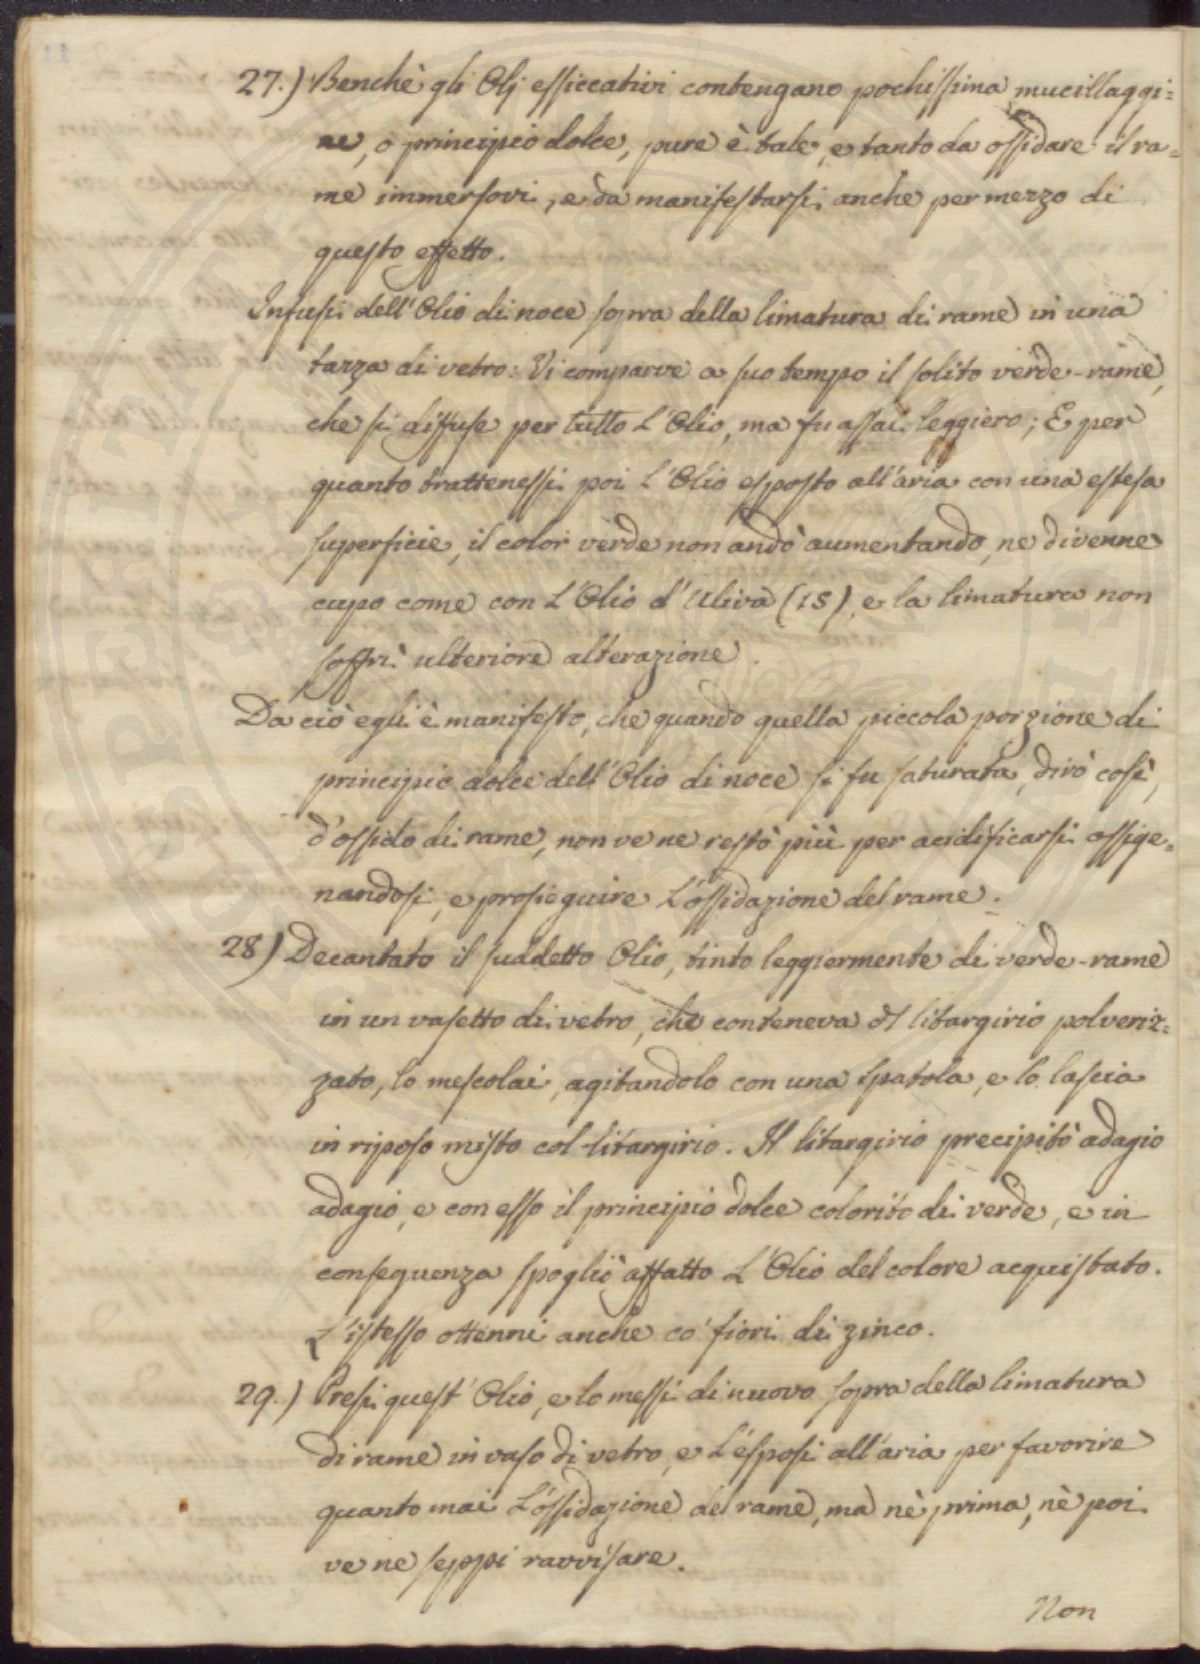 27.) Benchè gli Olj essiccativi contengano pochissima mucillaggi=
ne, o principio dolce, pure è tale, e tanto da ossidare il ra=
me immersovi, e da manifestarsi anche per mezzo di
questo effetto.
Infusi dell'Olio di noce sopra della limatura di rame in una
tazza di vetro: Vi comparve a suo tempo il solito verde-rame,
che si diffuse per tutto l'Olio, ma fu assai leggiero; E per
quanto trattenessi poi l'Olio esposto all'aria con una estesa
superficie, il color verde non andò aumentando, ne divenne
cupo come con l'Olio d'Uliva (15), e la limatura non
soffrì ulteriore alterazione.
Da ciò egli è manifesto, che quando quella piccola porzione di
principio dolce dell'Olio di noce si fu saturata, dirò così,
d'ossido di rame, non ve ne restò più per acidificarsi ossige=
nandosi, e proseguire l'ossidazione del rame.
28) Decantato il suddetto Olio, tinto leggiermente di verde-rame
in un vasetto di vetro, che conteneva del litargirio polveriz=
zato, lo mescolai, agitandolo con una spatola, e lo lascia
in riposo misto col litargirio. Il litargirio precipitò adagio
adagio, e con esso il principio dolce colorito di verde, e in
conseguenza spogliò affatto l'Olio del colore acquistato.
L'istesso ottenni anche co' fiori di zinco.
29.) Presi quest'Olio, e lo messi di nuovo sopra della limatura
di rame in vaso di vetro, e l'esposi all'aria per favorire
quanto mai l'ossidazione del rame, ma nè prima, nè poi
ve ne seppi ravvisare.
Non